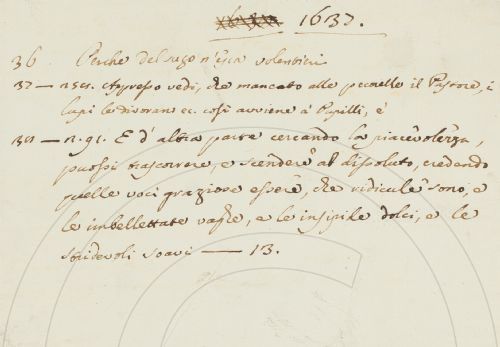 1637.
36 . Perche del sugo n'esca volentieri
37 — Appresso vedi, che mancato alle pecorelle il Pastore, i
lupi le divoran ec. così avviene à Pupilli, e
— n. 91. E d'altra parte cercando la piacevolezza,
puossi trascorrere, e scendere al dissoluto, credendo
quelle voci graziose essere, che ridicule sono, e
le imbellettate vaghe, e le insipide dolci, e le
stridevoli soavi — 13.